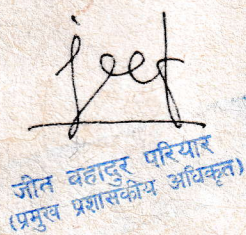 jeet
जीत बहादुर परियार
(प्रमुख प्रशासकीय अधिकृत)